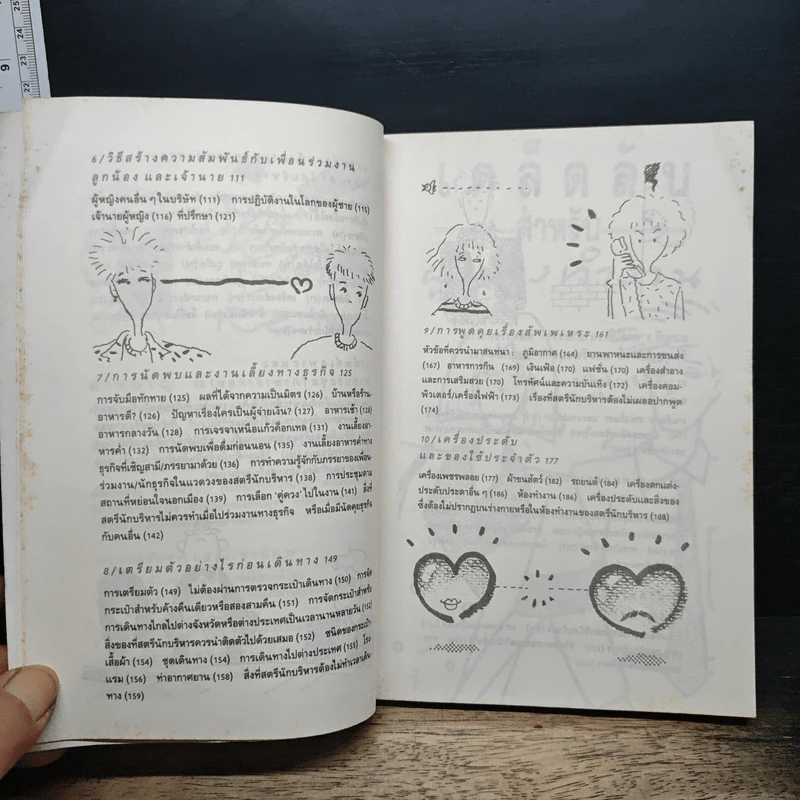 6/วิธีสร้างความสัมพันธ์กับเพื่อนร่วมงาน
ลูกน้อง และเจ้านาย 111
ผู้หญิงคนอื่น ๆ ในบริษัท (111) การปฏิบัติงานในโลกของผู้ชาย (115)
เจ้านายผู้หญิง (116) ที่ปรึกษา (121)
7/การนัดพบและงานเลี้ยงทางธุรกิจ 125
การจับมือทักทาย (125) ผลที่ได้จากความเป็นมิตร (126) บ้านหรือร้าน-
อาหารดี? (126) ปัญหาเรื่องใครเป็นผู้จ่ายเงิน? (127) อาหารเช้า (128)
อาหารกลางวัน (128) การเจรจาเหนือแก้วค็อกเทล (131) งานเลี้ยงอาหาร-
ค่ำ (132) การนัดพบเพื่อดื่มก่อนนอน (135) งานเลี้ยงอาหารค่ำทาง
ธุรกิจที่เชิญสามี/ภรรยามาด้วย (136) การทำความรู้จักกับภรรยาของเพื่อน-
ร่วมงาน/นักธุรกิจในแวดวงของสตรีนักบริหาร (138) การประชุมตาม
สถานที่หย่อนใจนอกเมือง (139) การเลือก 'คู่ควง' ไปในงาน (141) สิ่งที่
สตรีนักบริหารไม่ควรทำเมื่อไปร่วมงานทางธุรกิจ หรือเมื่อมีนัดคุยธุรกิจ
กับคนอื่น (142)
8/เตรียมตัวอย่างไรก่อนเดินทาง 149
การเตรียมตัว (149) ไม่ต้องผ่านการตรวจกระเป๋าเดินทาง (150) การจัด
กระเป๋าสำหรับค้างคืนเดียวหรือสองสามคืน (151) การจัดกระเป๋าสำหรับ
การเดินทางไกลไปต่างจังหวัดหรือต่างประเทศเป็นเวลานานหลายวัน (152)
สิ่งของที่สตรีนักบริหารควรนำติดตัวไปด้วยเสมอ (152) ชนิดของกระเป๋า-
เสื้อผ้า (154) ชุดเดินทาง (154) การเดินทางไปต่างประเทศ (155) โรง-
แรม (156) ท่าอากาศยาน (158) สิ่งที่สตรีนักบริหารต้องไม่ทำเวลาเดิน-
ทาง (159)
9/การพูดคุยเรื่องสัพเพเหระ 161
หัวข้อที่ควรนำมาสนทนา : ภูมิอากาศ (164) ยานพาหนะและการขนส่ง
(167) อาหารการกิน (169) เงินเฟ้อ (170) แฟชั่น (170) เครื่องสำอาง
และการเสริมสวย (170) โทรทัศน์และความบันเทิง (172) เครื่องคอม-
พิวเตอร์/เครื่องไฟฟ้า (173) เรื่องที่สตรีนักบริหารต้องไม่เผลอปากพูด
(174)
10/เครื่องประดับ
และของใช้ประจำตัว 177
เครื่องเพชรพลอย (177) ผ้าขนสัตว์ (182) รถยนต์ (184) เครื่องตกแต่ง-
ประดับประดาอื่น ๆ (186) ห้องทำงาน (186) เครื่องประดับและสิ่งของ
ซึ่งต้องไม่ปรากฏบนร่างกายหรือในห้องทำงานของสตรีนักบริหาร (188)